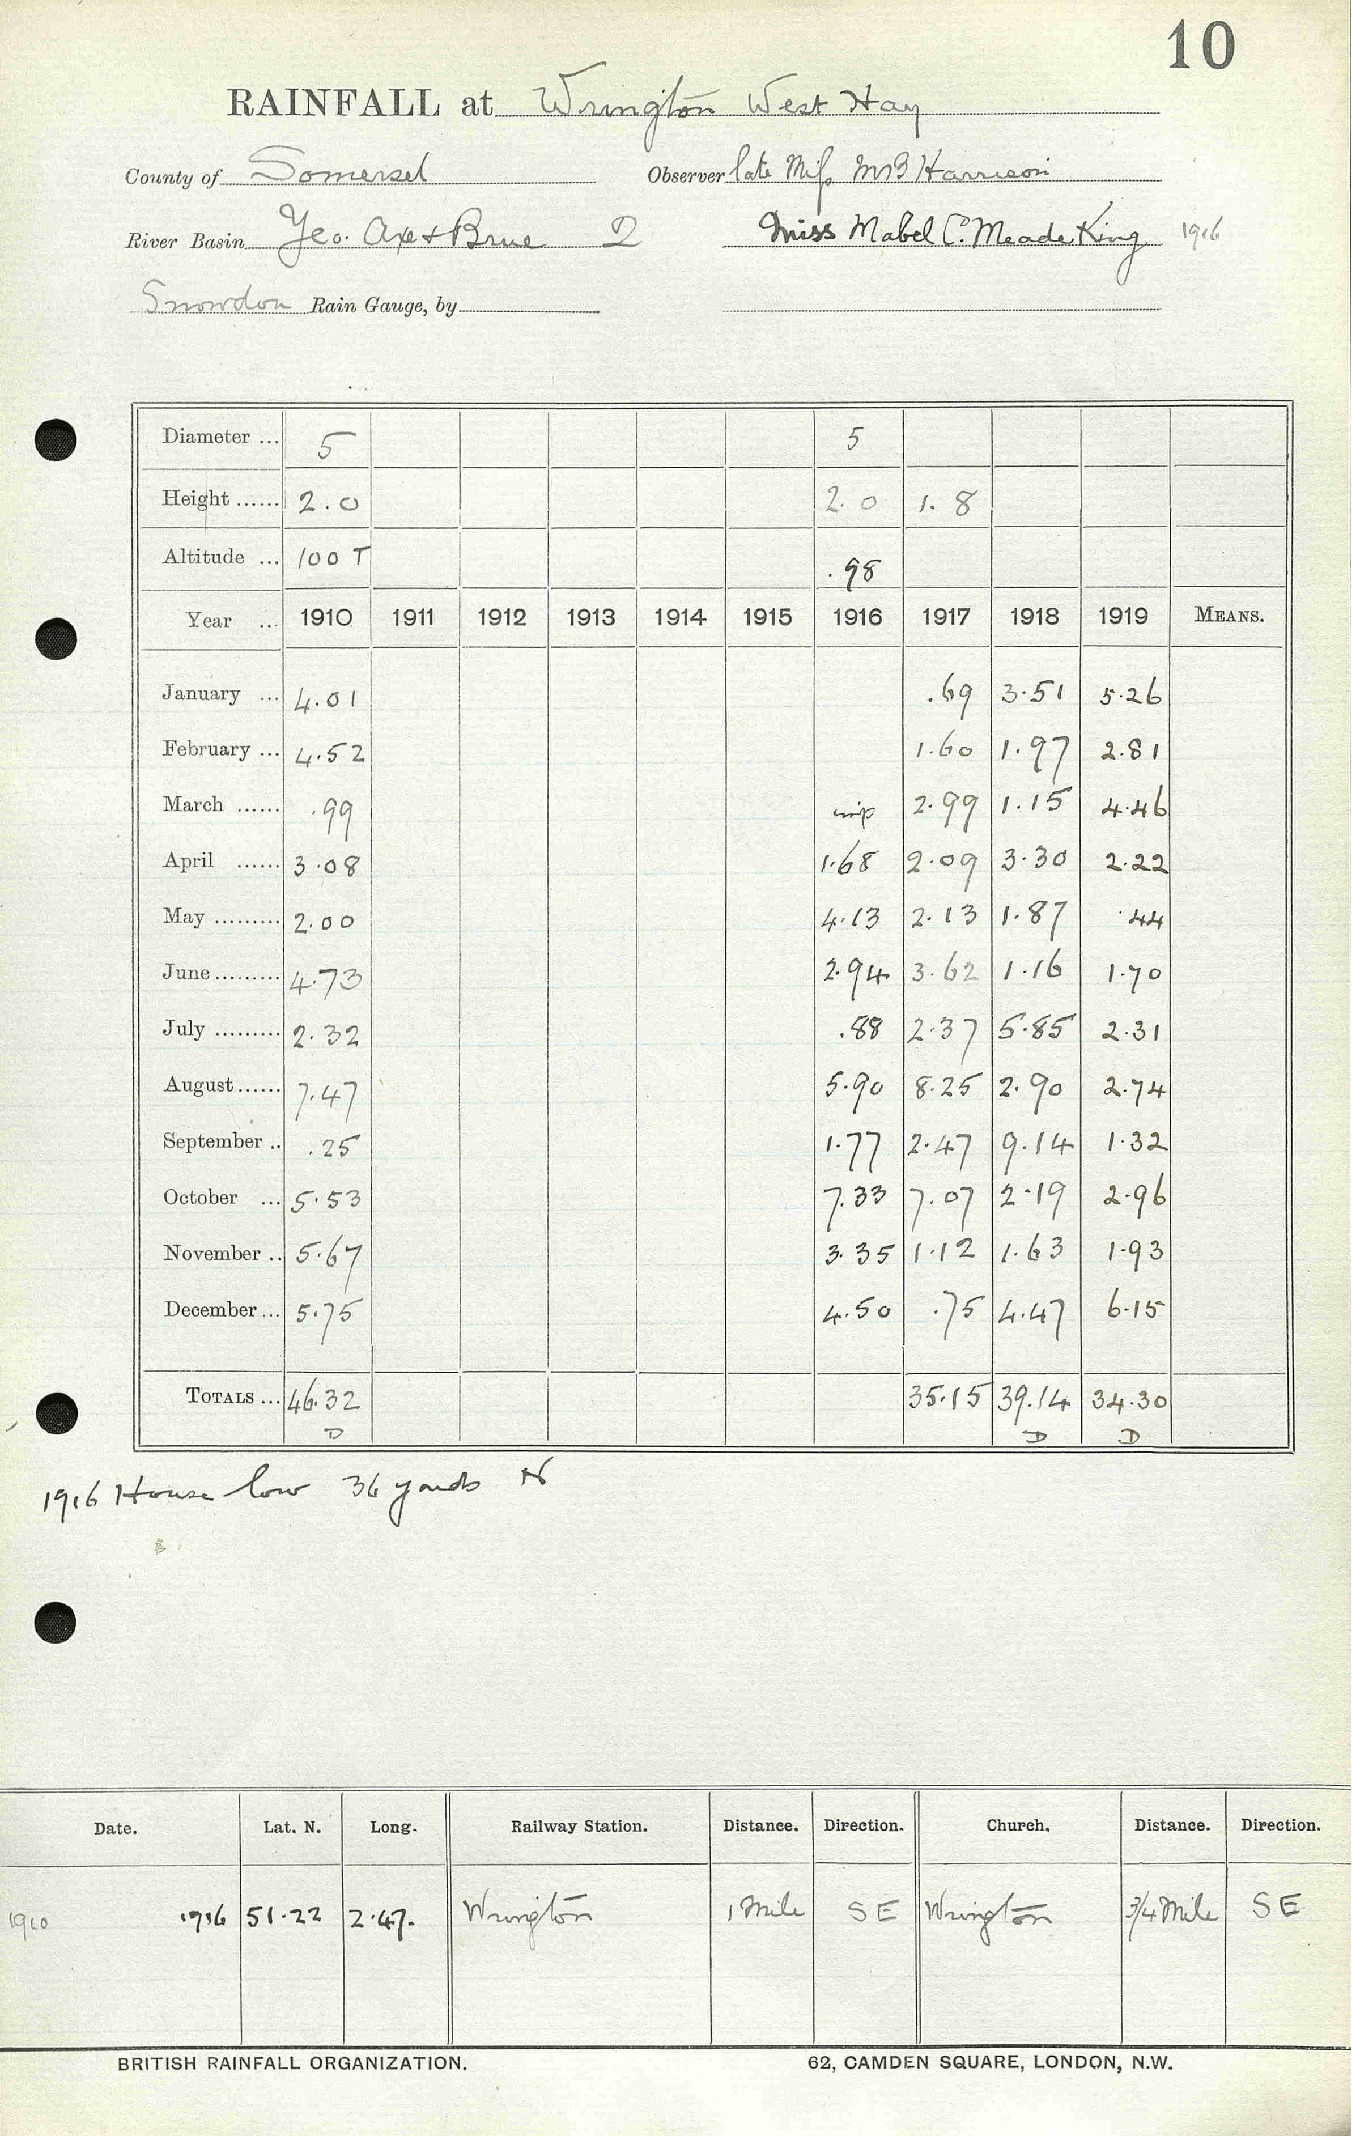 10
RAINFALL at Wrington West Hay
County of Somerset Observer late Miss M B Harrison
River Basin Yeo. Axe & Brue 2 Miss Mabel C. Meade King 1916
Snowdon Rain Gauge, by
Diameter ... 5 5
Height ...... 2.0 2.0 1.8
Altitude ... 100 T .98
Year ... 1910 1911 1912 1913 1914 1915 1916 1917 1918 1919 MEANS.
January ... 4.01 .69 3.51 5.26
February ... 4.52 1.60 1.97 2.81
March ...... .99 2.99 1.15 4.46
April ...... 3.08 1.68 2.09 3.30 2.22
May ......... 2.00 4.13 2.13 1.87 .44
June......... 4.73 2.94 3.62 1.16 1.70
July ......... 2.32 .88 2.37 5.85 2.31
August...... 7.47 5.90 8.25 2.90 2.74
September .. .25 1.77 2.47 9.14 1.32
October ... 5.53 7.33 7.07 2.19 2.96
November .. 5.67 3.35 1.12 1.63 1.93
December... 5.75 4.50 .75 4.47 6.15
TOTALS ... 46.32 35.15 39.14 34.30
D D D
1916 House low 36 yards N
Date. Lat. N. Long. Railway Station. Distance. Direction. Church. Distance. Direction.
1910 1916 51.22 2.47. Wrington 1 Mile SE Wrington 3/4 Mile SE
BRITISH RAINFALL ORGANIZATION. 62, CAMDEN SQUARE, LONDON, N.W.